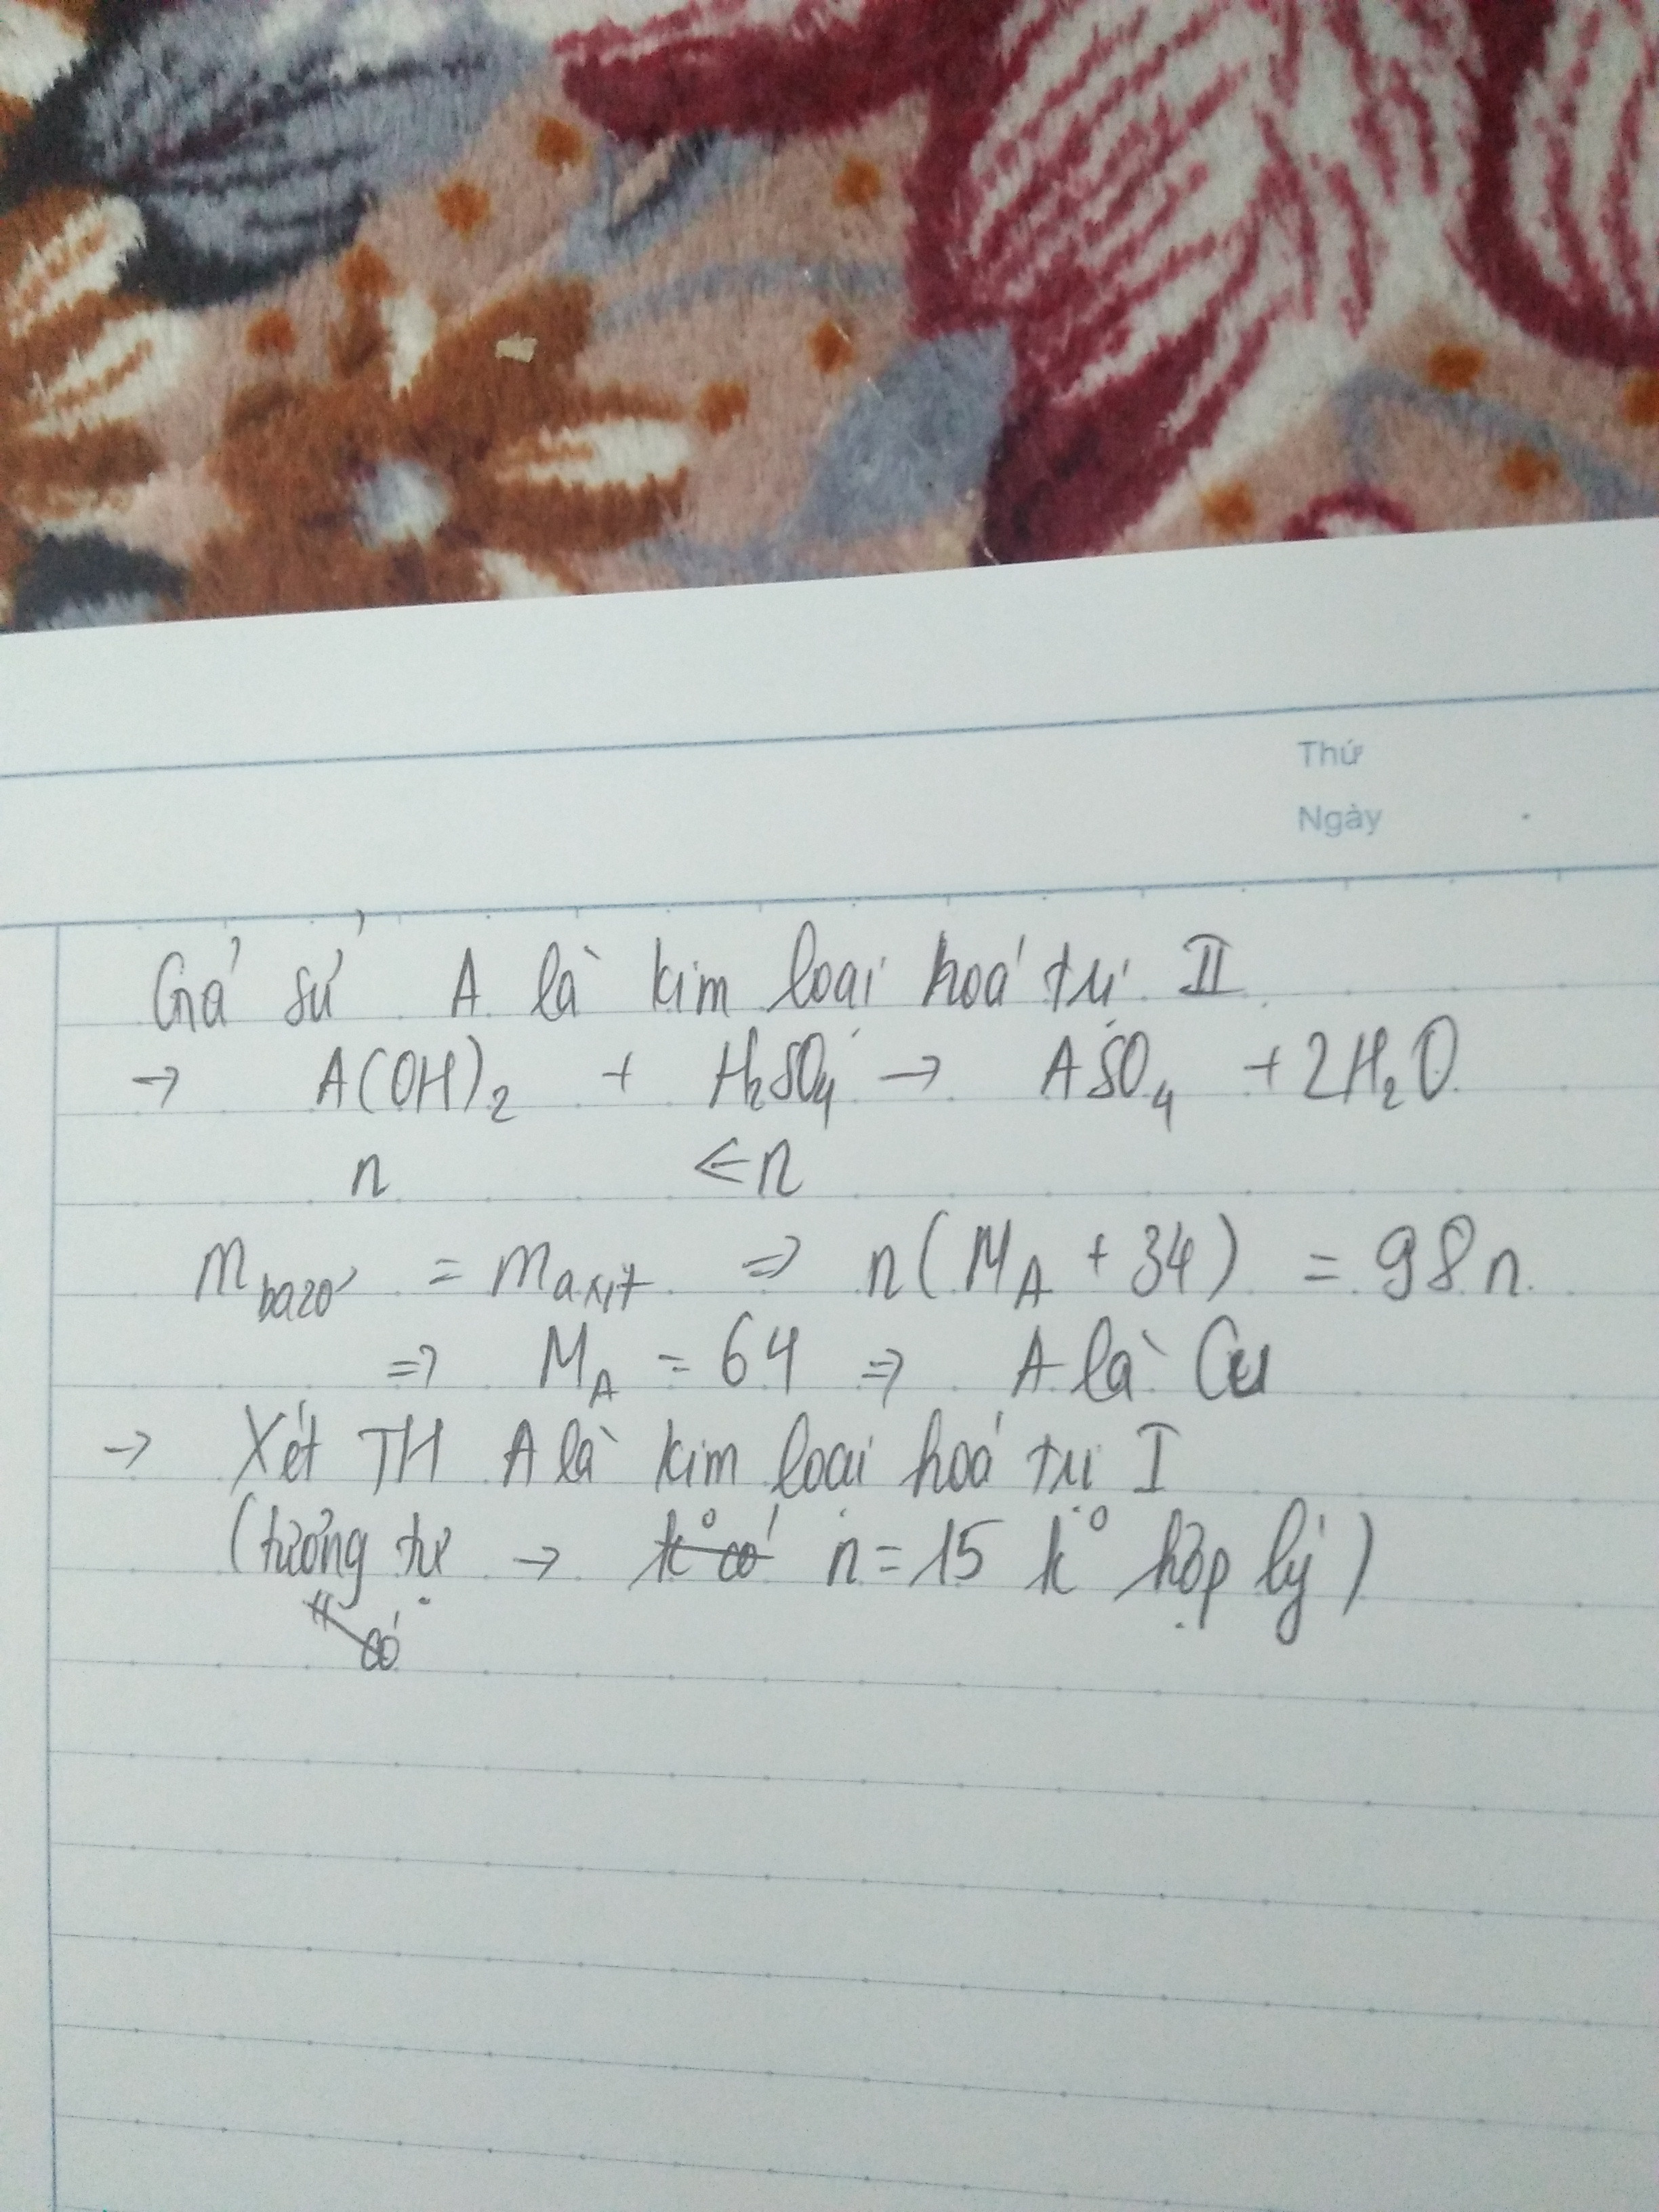 Thứ
Ngày
Giả sử A là kim loại hoá trị II
→ A(OH)₂ + H₂SO₄ → ASO₄ + 2H₂O
n ⇐ n
m bazơ = m axit ⇒ n(M_A + 34) = 98n
⇒ M_A = 64 ⇒ A là Cu
→ Xét TH A là kim loại hoá trị I
(tương tự → k° có n = 15 k° hợp lý)
có